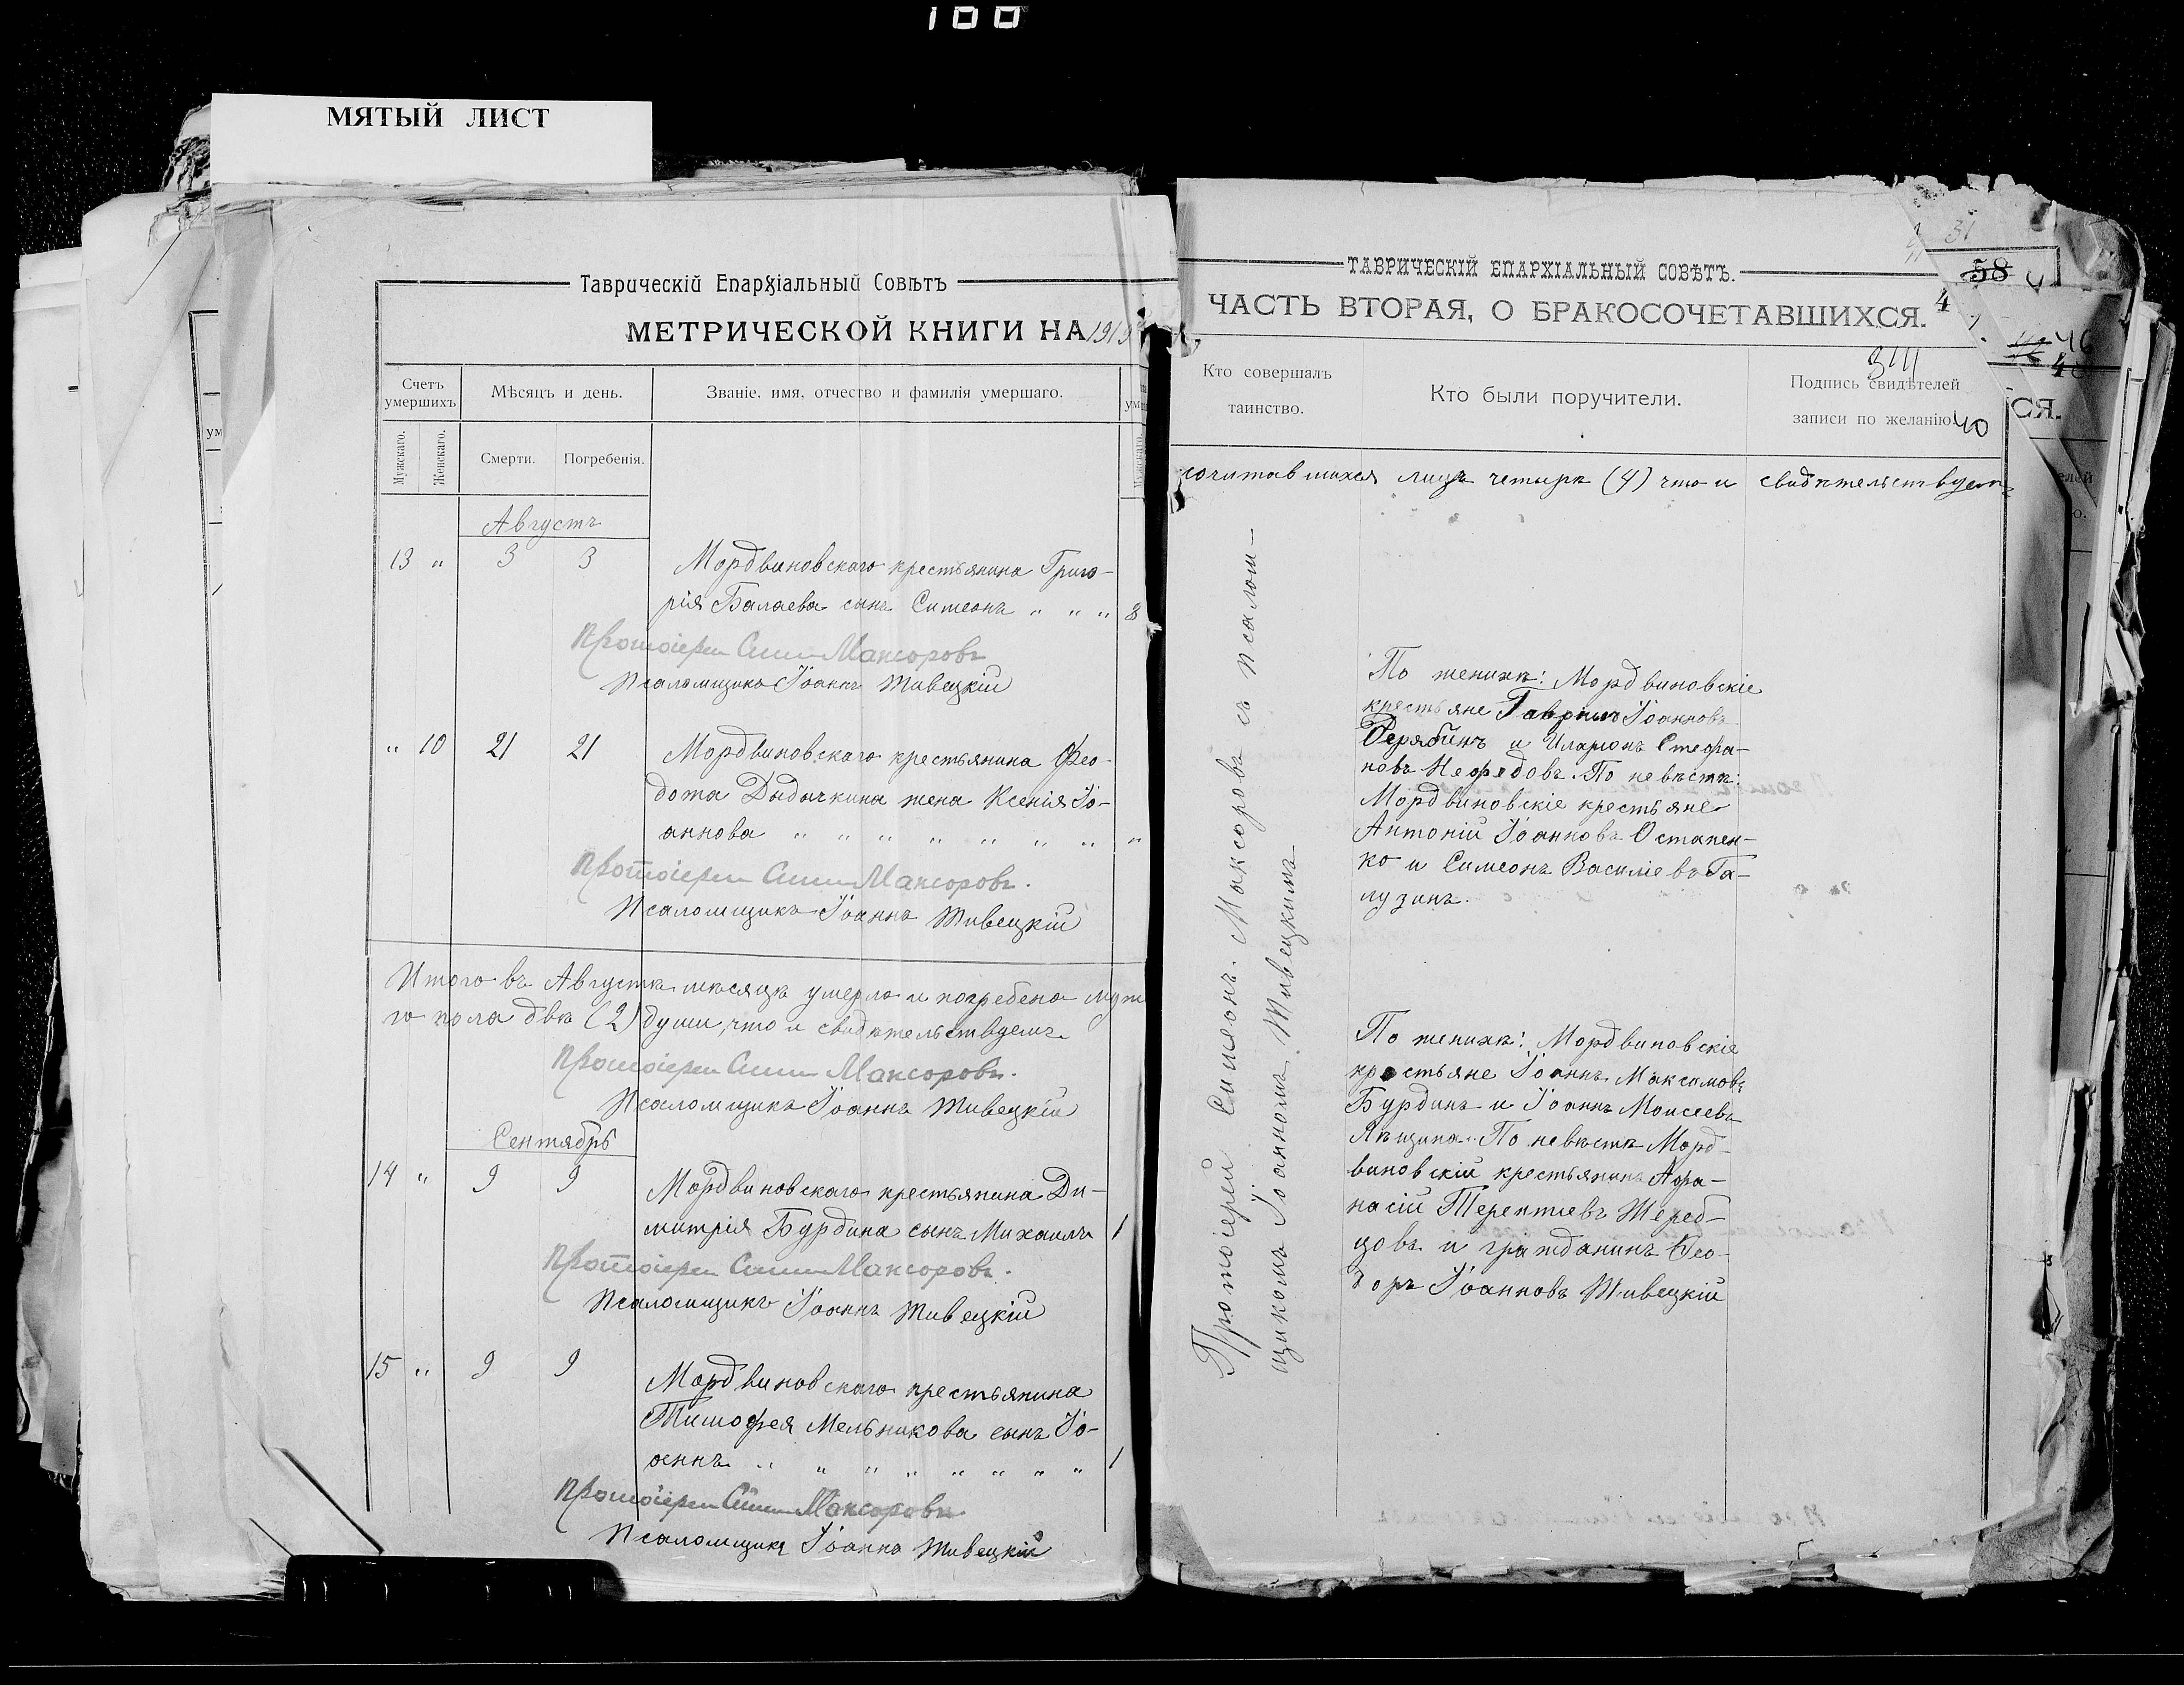 100
МЯТЫЙ ЛИСТ
Таврическій Епархіальный Совѣтъ
МЕТРИЧЕСКОЙ КНИГИ НА 1919
Счетъ умершихъ
Мѣсяцъ и день.
Званіе, имя, отчество и фамилія умершаго.
Мужскаго.
Женскаго.
Смерти.
Погребенія.
Августъ
13 " 3 3 Мордвиновскаго крестьянина Григо-
рія Балаева сынъ Симеонъ " " " 8
Протоіерей Симеонъ Максоровъ
Псаломщикъ Іоаннъ Живецкій
" 10 21 21 Мордвиновскаго крестьянина Фео-
дота Дыдычкина жена Ксенія Іо-
аннова " " " " " " " "
Протоіерей Симеонъ Максоровъ.
Псаломщикъ Іоаннъ Живецкій
Итого въ Августѣ мѣсяцѣ умерло и погребено муж
го пола двѣ (2) души, что и свидѣтельствуемъ.
Протоіерей Симеонъ Максоровъ.
Псаломщикъ Іоаннъ Живецкій
Сентябрь
14 " 9 9 Мордвиновскаго крестьянина Ди-
митрія Бурдина сынъ Михаилъ 1
Протоіерей Симеонъ Максоровъ.
Псаломщикъ Іоаннъ Живецкій
15 " 9 9 Мордвиновскаго крестьянина
Тимофея Мельникова сынъ Іо-
аннъ " " " " " " " " 1
Протоіерей Симеонъ Максоровъ
Псаломщикъ Іоаннъ Живецкій
31
ТАВРИЧЕСКІЙ ЕПАРХІАЛЬНЫЙ СОВѢТЪ.
58
ЧАСТЬ ВТОРАЯ, О БРАКОСОЧЕТАВШИХСЯ.
4
46
СЯ.
Кто совершалъ
таинство.
Кто были поручители.
Подпись свидѣтелей
записи по желанію.
40
сочитавшихся лицъ четыре (4) что и свидѣтельствуемъ
Протоіерей Симеонъ Максоровъ съ псалом-
щикомъ Іоанномъ Живецкимъ
По женихѣ: Мордвиновскіе
крестьяне Гавріилъ Іоанновъ
Дерябинъ и Иларіонъ Стефа-
новъ Нефедовъ. По невѣстѣ:
Мордвиновскіе крестьяне
Антоній Іоанновъ Остапен-
ко и Симеонъ Василіевъ Га-
лузинъ.
По женихѣ: Мордвиновскіе
крестьяне Іоаннъ Максимовъ
Бурдинъ и Іоаннъ Моисеевъ
Якщина. По невѣстѣ Морд-
виновскій крестьянинъ Афа-
насій Терентіевъ Жереб-
цовъ и гражданинъ Фео-
доръ Іоанновъ Живецкій